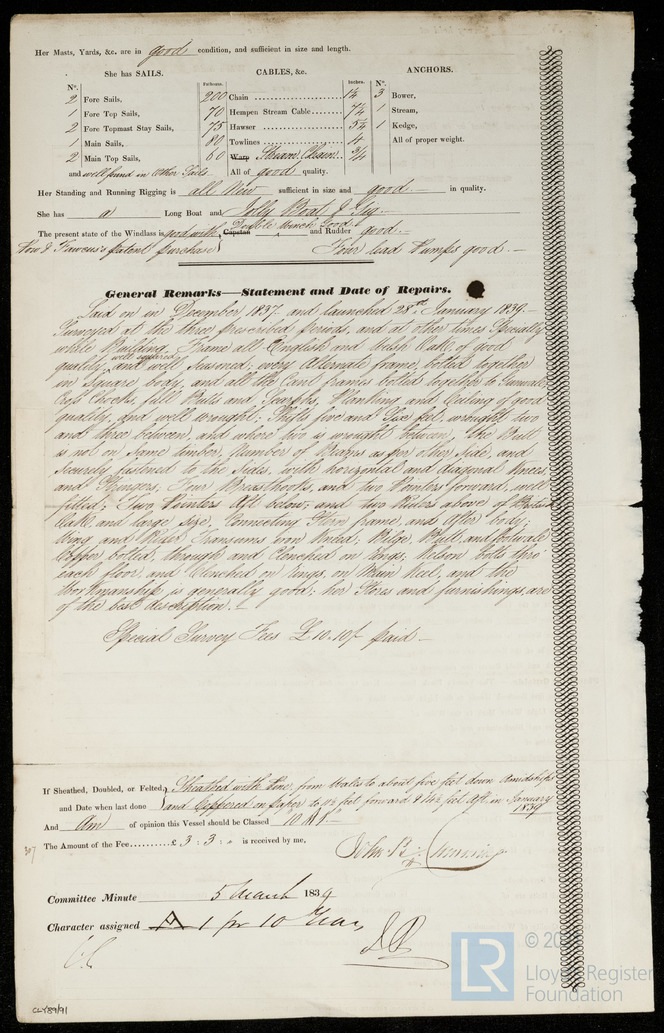 Her Masts, Yards, &c. are in good condition, and sufficient in size and length.
She has SAILS. CABLES, &c. ANCHORS.
N°. Fathoms. Inches. N°.
2 Fore Sails, 200 Chain 1¼ 3 Bower,
1 Fore Top Sails, 70 Hempen Stream Cable 7½ 1 Stream,
2 Fore Topmast Stay Sails, 75 Hawser 5½ 1 Kedge,
1 Main Sails, 80 Towlines 4 All of proper weight.
2 Main Top Sails, 60 Warp Stream Chain ¾
and well found in Other Sails All of good quality.
Her Standing and Running Rigging is all New sufficient in size and good in quality.
She has a Long Boat and Jolly Boat & Gig.
The present state of the Windlass is good with Capstan Double Winch Good and Rudder good.
patent purchase Four lead Pumps good.
General Remarks—Statement and Date of Repairs.
Laid on in December 1837. and launched 28th January 1839.
Surveyed at the three prescribed periods, and at other times Specially
while Building. Frame all English and Oak of good
quality, well squared and well Seasoned; every Alternate frame, bolted together
in Square body, and all the Cant frames bolted together to Gunwale
Chocks, full Butts and Scarphs, Planking and Ceiling of good
quality, and well wrought; Shifts five and Six feet, wrought two
and three between, and where two is wrought between, the Butt
is not on Same timber, Number of Beams as per other Side, and
Securely fastened to the Sides, with horizontal and diagonal Knees
and Stringers, Four Breasthooks, and two Pointers forward, well
fitted; Two Pointers Aft below; and two Riders above of British
Oak, and large size, Connecting Stern frame, and After body;
Wing and Transoms iron Kneed; Bilge, Butt, and footwale
Copper bolted, through and Clenched on rings, Kelson bolts thro
each floor, and Clenched on rings, on Main Keel, and the
Workmanship is generally good; her Stores and furnishings, are
of the best description.
Special Survey Fees £10.10/ paid
If Sheathed, Doubled, or Felted, Sheathed with from Wales to about five feet down Amidships
and Date when last done and Coppered on paper to feet forward & feet Aft. in January
1839
And Am of opinion this Vessel should be Classed 10 A1.
The Amount of the Fee £ 3 : 3 : 0 is received by me.
307
John B. Cumming
Committee Minute 5 March 1839
Character assigned A 1 for 10 Years
CLY89/91
LR
© 20
Lloyd's Register
Foundation